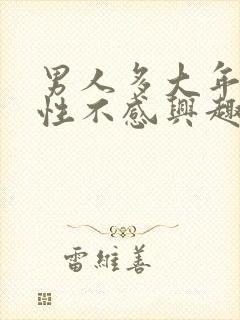 男人多大年
性不感興趣
雷維善